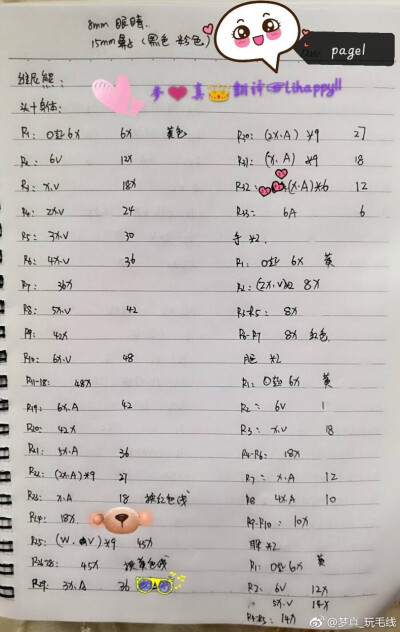 8mm 眼睛
15mm 鼻子 (黑色 粉色)
page1
维尼熊:
梦 真 翻译 lihappy!!
头+身体:
R1: 0起6X 6X 黄色
R2: 6V 12X
R3: X.V 18X
R4: 2X.V 24
R5: 3X.V 30
R6: 4X.V 36
R7: 36X
R8: 5X.V 42
R9: 42X
R10: 6X.V 48
R11-18: 48X
R19: 6X.A 42
R20: 42X
R21: 5X.A 36
R22: (2X.A)*9 27
R23: X.A 18 换红色线
R24: 18X
R25: (W.V)*9 45X
R26-28: 45X 换黄色线
R29: 3X.A 36
R30: (2X.A)*9 27
R31: (X.A)*9 18
R32: (X.A)*6 12
R33: 6A 6
手*2.
R1: 0起6X 黄
R2: (2X.V)*2 8X
R3-R5: 8X
R6-R7 8X 红色
腿*2
R1: 0起6X 黄
R2: 6V 1
R3: X.V 18
R4-R6: 18X
R7: X.A 12
R8 4X.A 10
R9-R10: 10X
R1: 0起6X 黄
R2: 6V 12X
5X.V 14X
14X
@梦真_玩毛线